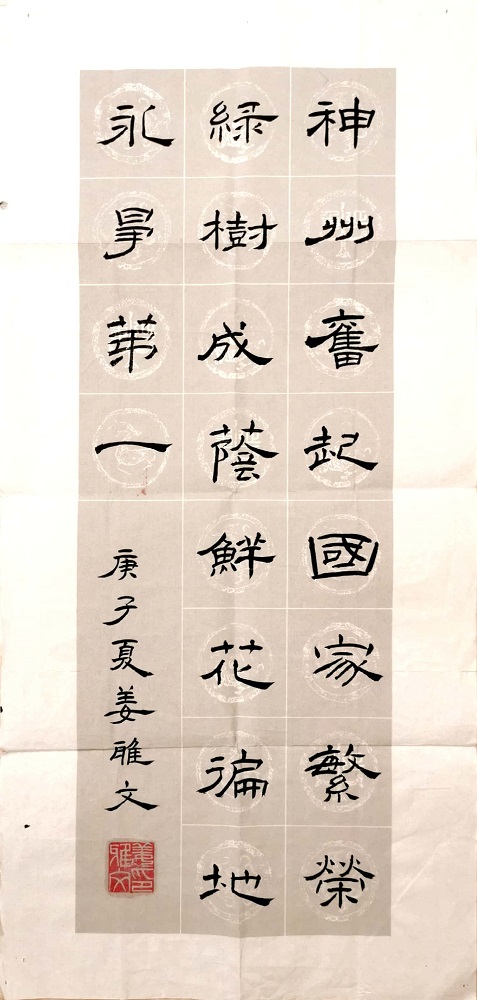 神州奮起國家繁榮
緑樹成蔭鮮花徧地
永爭第一
庚子夏姜雅文
姜印
雅文